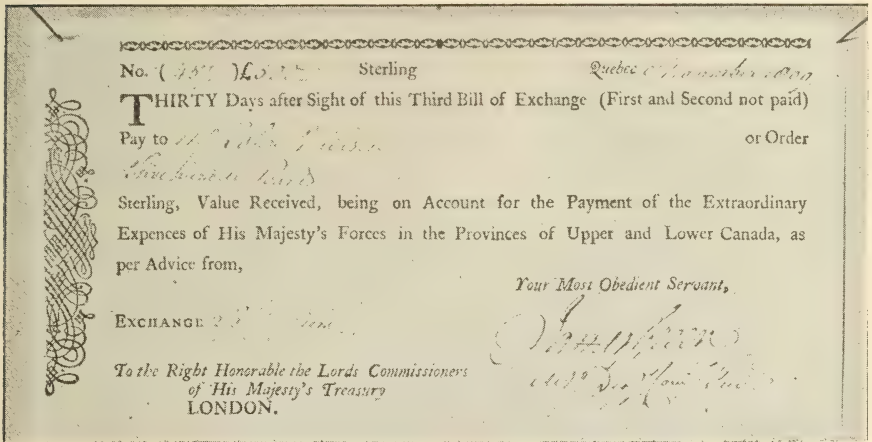 No. ( )£ Sterling Quebec November 1800
THIRTY Days after Sight of this Third Bill of Exchange (First and Second not paid)
Pay to or Order
Sterling, Value Received, being on Account for the Payment of the Extraordinary
Expences of His Majesty's Forces in the Provinces of Upper and Lower Canada, as
per Advice from,
Your Most Obedient Servant,
EXCHANGE
To the Right Honorable the Lords Commissioners
of His Majesty's Treasury
LONDON.